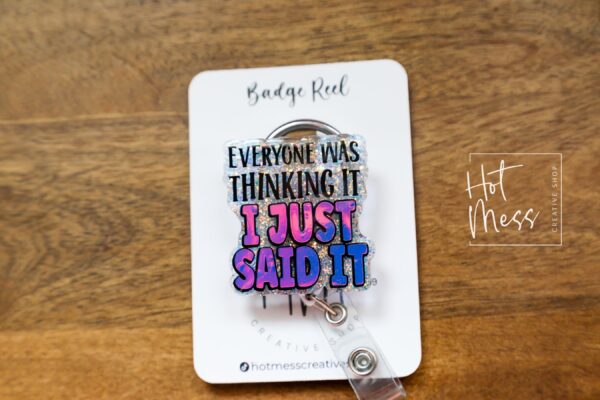 Badge Reel
EVERYONE WAS
THINKING IT
I JUST
SAID IT
CREATIVE SHOP
hotmesscreatives
Hot
Mess
CREATIVE SHOP